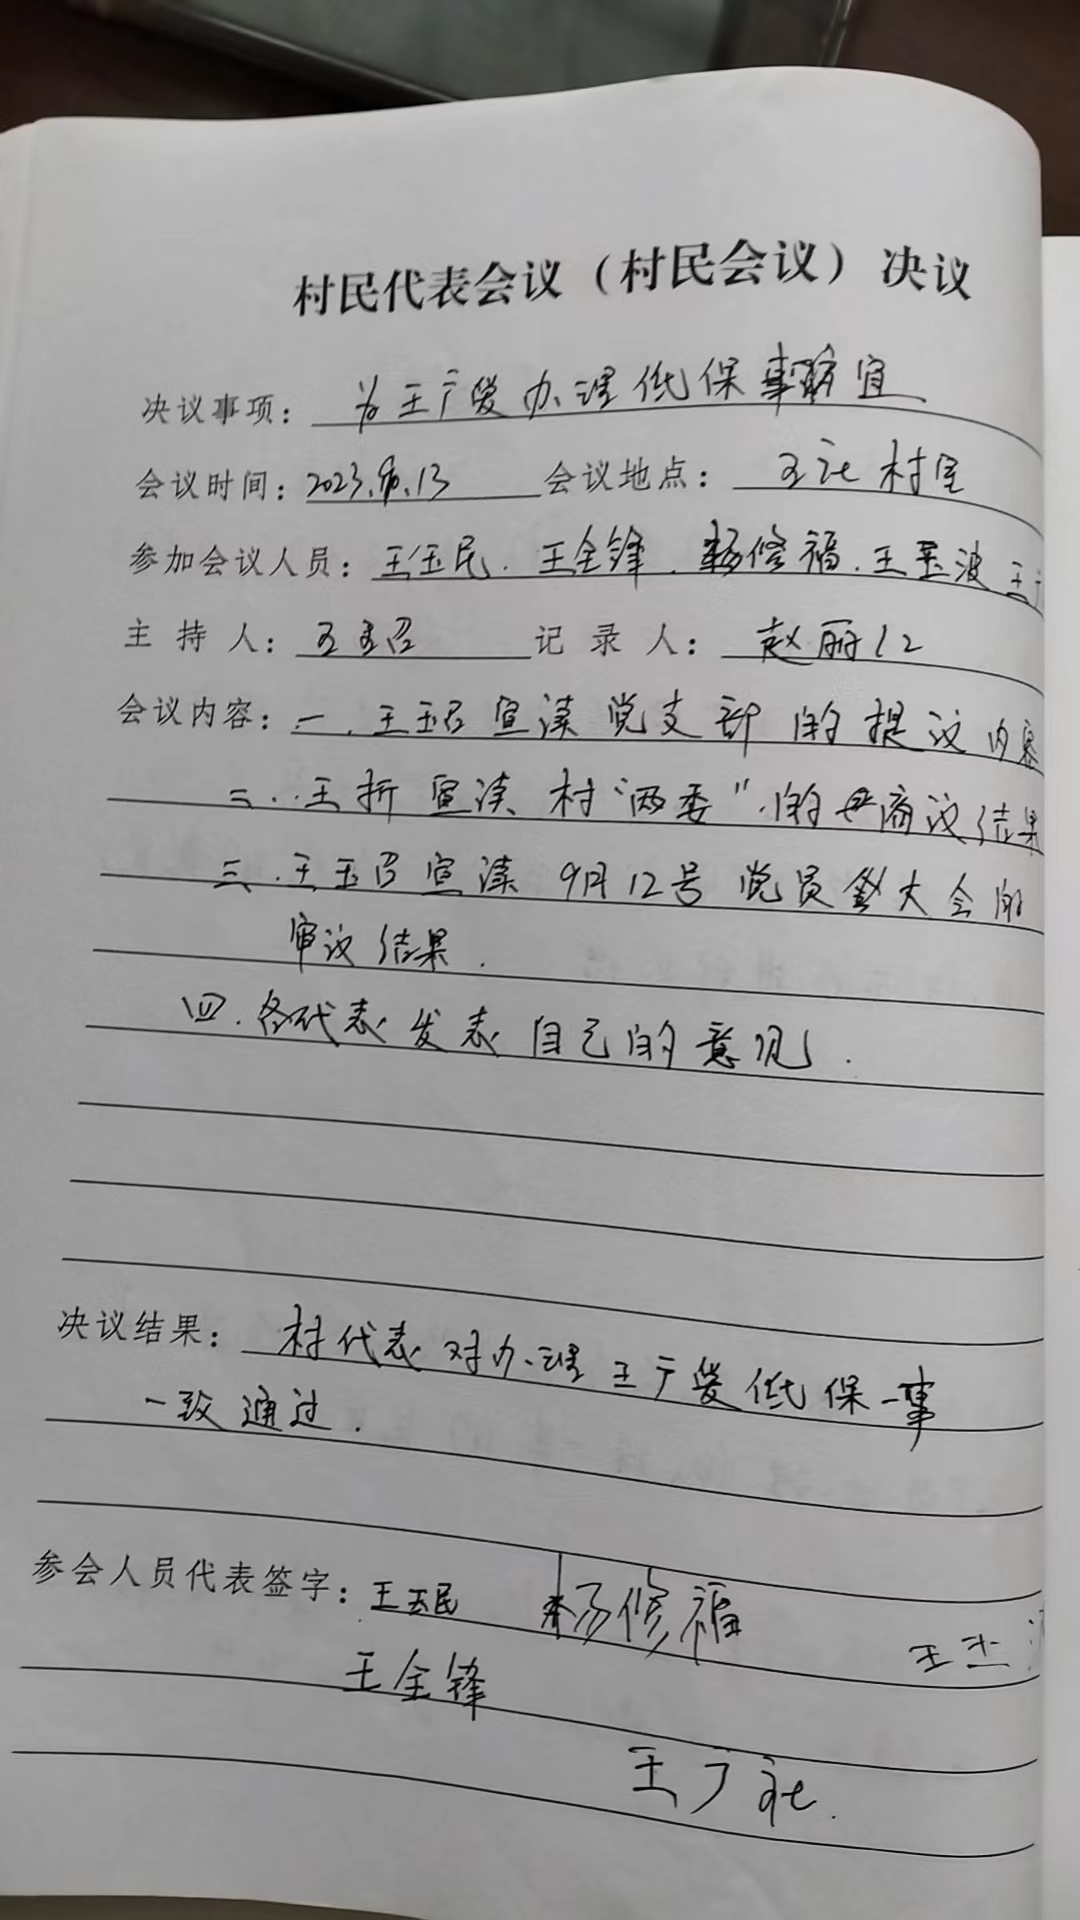 村民代表会议（村民会议）决议
决议事项：为王广爱办理低保事宜
会议时间：2023.9.13 会议地点：王社村室
参加会议人员：王玉民、王全锋、杨修福、王玉波 王广
主持人：王玉召 记录人：赵丽
会议内容：一、王玉召宣读党支部的提议内容
二、王折宣读村“两委”的商议结果
三、王玉召宣读9月12号党员大会的
审议结果.
四.各代表发表自己的意见.
决议结果：村代表对办理王广爱低保一事
一致通过.
参会人员代表签字：王玉民 杨修福 王
王全锋
王广社.